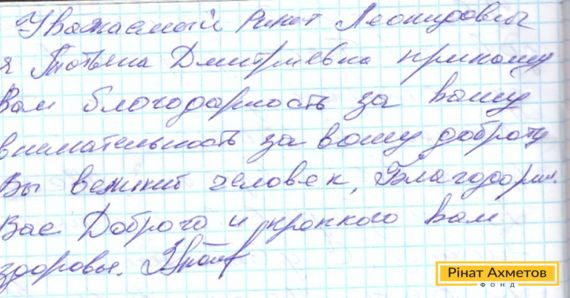 Уважаемый Ринат Леонидовичь
я Татьяна Дмитриевна приношу
Вам благодарность за вашу
внимательность за вашу доброту
Вы великий человек, Благодарим
Вас Доброго и крепкого вам
здоровья.
Рінат Ахметов
ФОНД